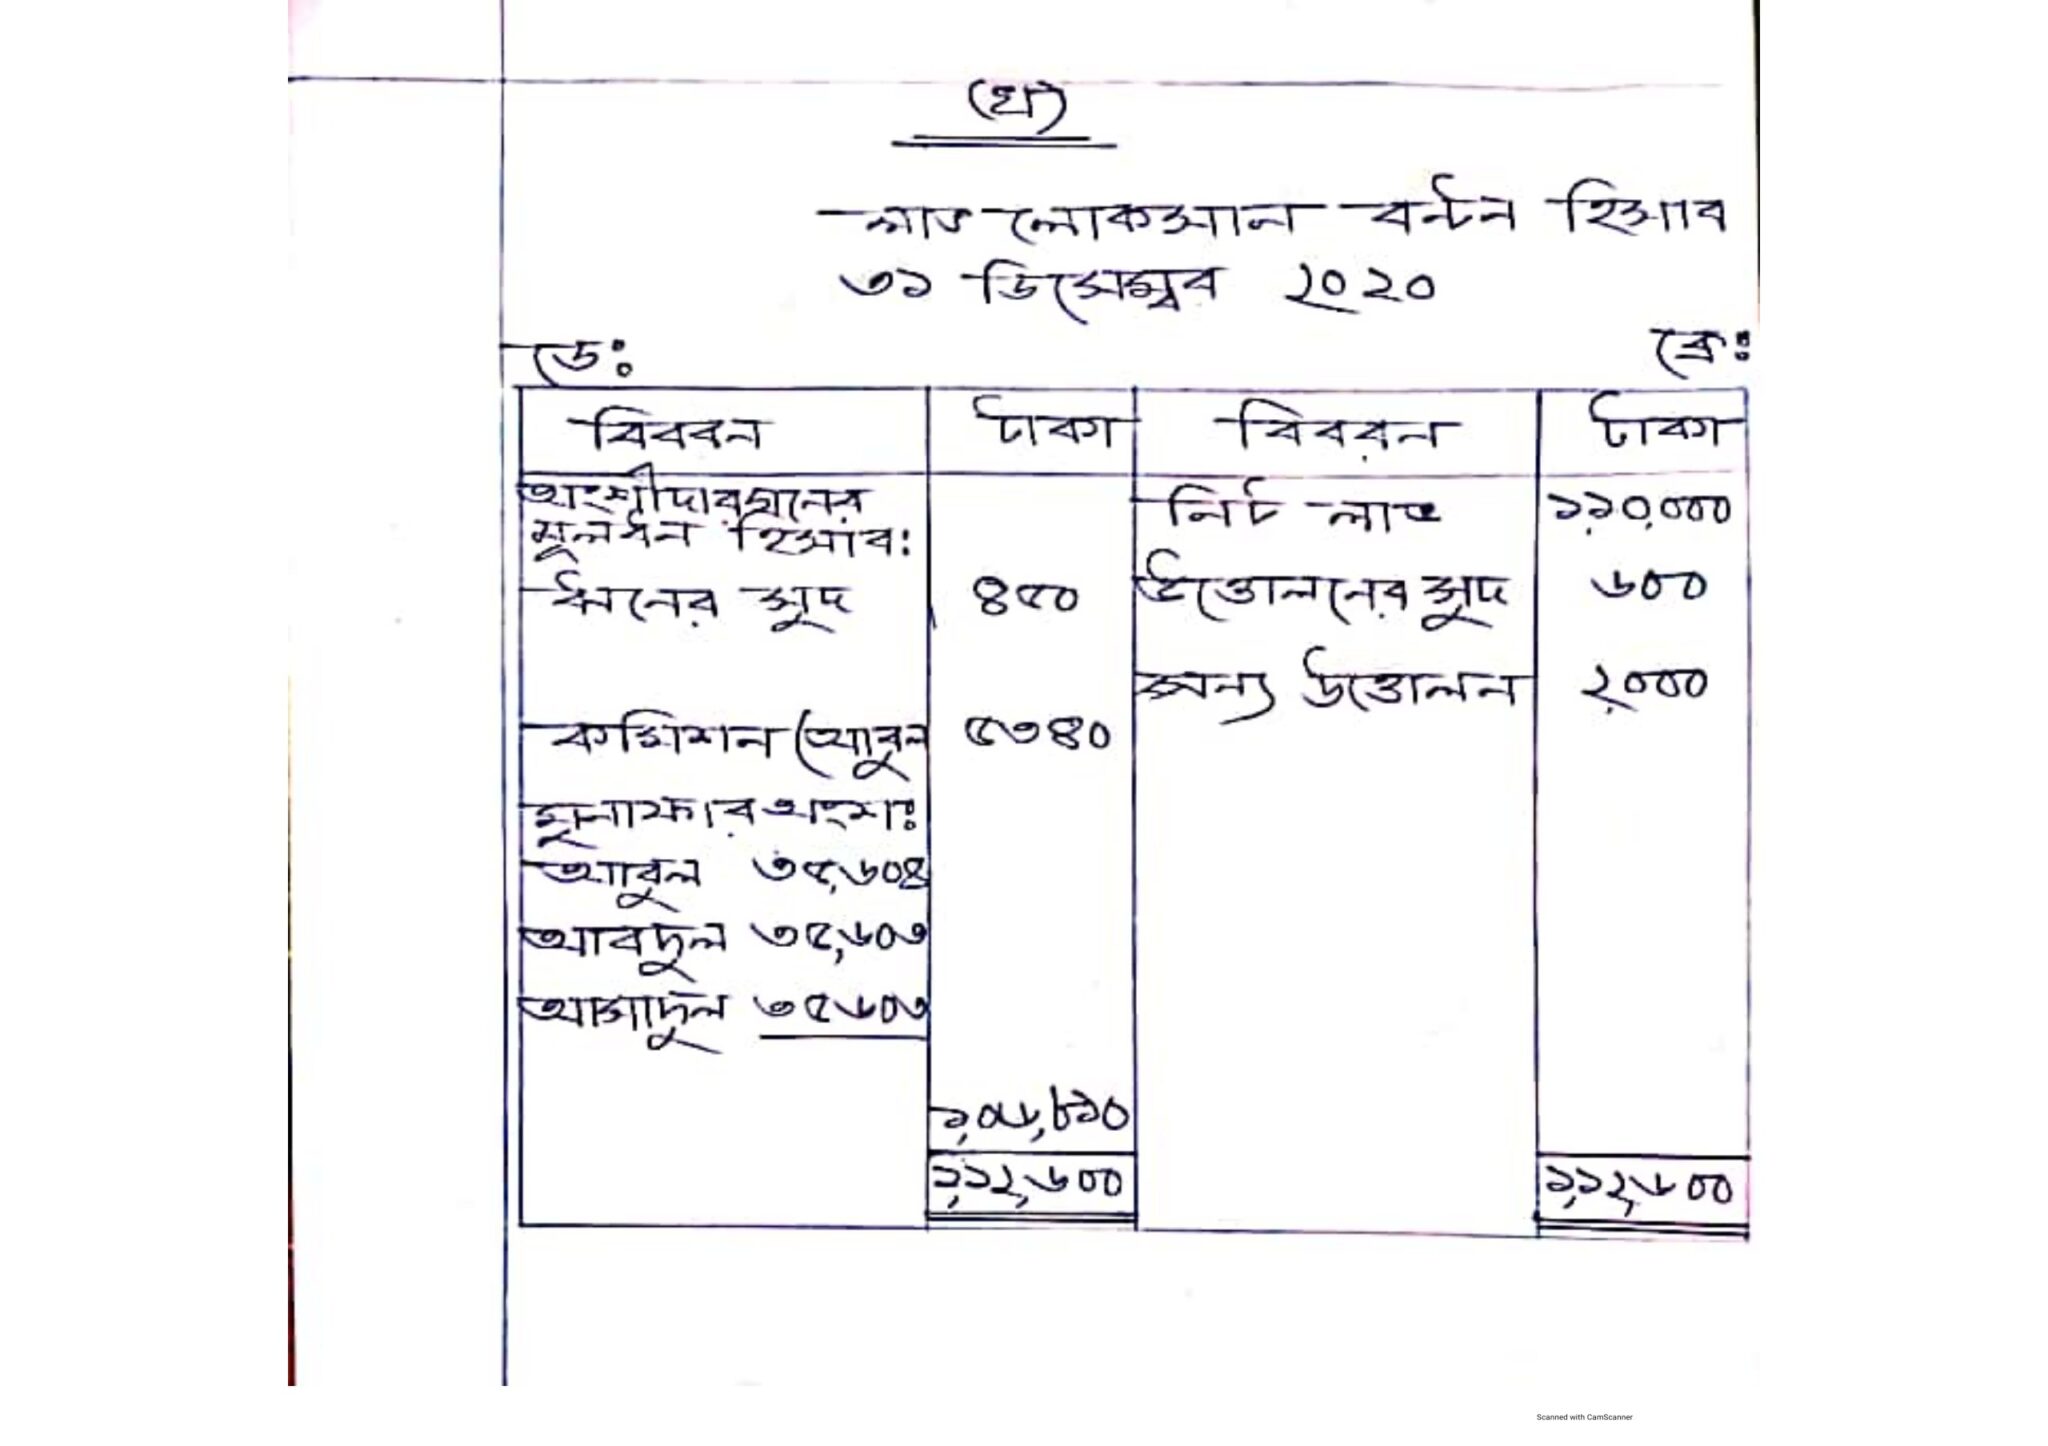 (খ)
লাভ লোকসান বন্টন হিসাব
৩১ ডিসেম্বর ২০২০
ডে: ক্রে:
বিবরন টাকা বিবরন টাকা
অংশীদারগনের নিট লাভ ১১০,০০০
মূলধন হিসাব:
ঋনের সুদ ৪৫০ উত্তোলনের সুদ ৬০০
পন্য উত্তোলন ২০০০
কমিশন (আবুল ৫৩৪০
মুনাফার অংশ:
আবুল ৩৫,৬০৪
আবদুল ৩৫,৬০৩
আসাদুল ৩৫৬০৩
১,০৬,৮১০
১,১২,৬০০ ১,১২,৬০০
Scanned with CamScanner